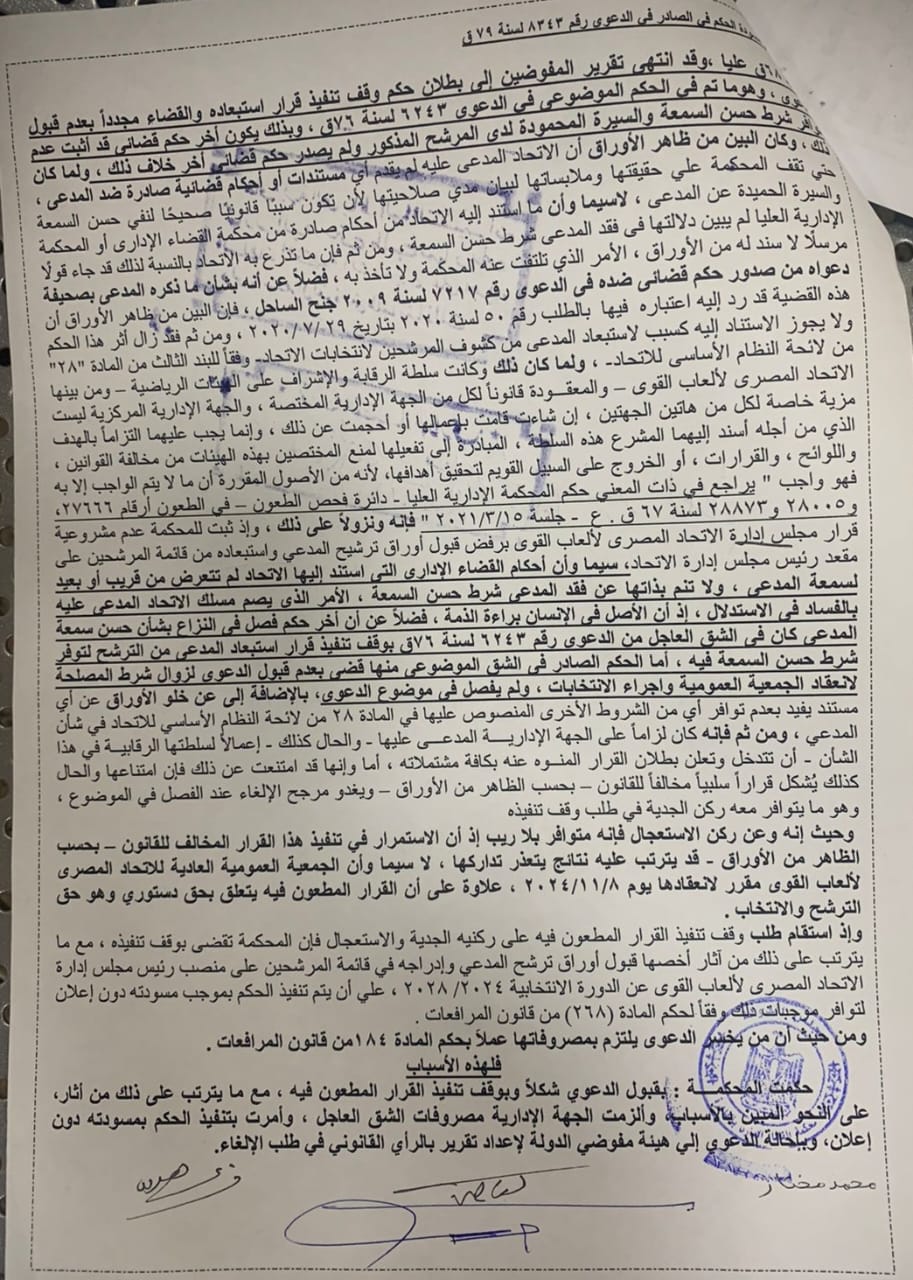 الحكم في الصادر فى الدعوى رقم ٨٣٤٣ لسنة ٧٩ ق
عليا ،وقد انتهى تقرير المفوضين إلى بطلان حكم وقف تنفيذ قرار استبعاده والقضاء مجدداً بعدم قبول
، وهوما تم في الحكم الموضوعي في الدعوى ٦٢٤٣ لسنة ٧٦ق ، وبذلك يكون أخر حكم قضائى قد أثبت عدم
شرط حسن السمعة والسيرة المحمودة لدى المرشح المذكور ولم يصدر حكم قضائى أخر خلاف ذلك ، ولما كان
ذلك ، وكان البين من ظاهر الأوراق أن الاتحاد المدعى عليه لم يقدم أي مستندات أو أحكام قضائية صادرة ضد المدعى ،
حتي تقف المحكمة علي حقيقتها وملابساتها لبيان مدي صلاحيتها لأن تكون سببًا قانونيًا صحيحًا لنفي حسن السمعة
والسيرة الحميدة عن المدعى ، لاسيما وأن ما استند إليه الاتحاد من أحكام صادرة من محكمة القضاء الإدارى أو المحكمة
الإدارية العليا لم يبين دلالتها فى فقد المدعى شرط حسن السمعة ، ومن ثم فإن ما تذرع به الاتحاد بالنسبة لذلك قد جاء قولًا
مرسلًا لا سند له من الأوراق ، الأمر الذي تلتفت عنه المحكمة ولا تأخذ به ، فضلًا عن أنه بشأن ما ذكره المدعى بصحيفة
دعواه من صدور حكم قضائى ضده فى الدعوى رقم ٧٢١٧ لسنة ٢٠٠٩ جنح الساحل ، فإن البين من ظاهر الأوراق أن
هذه القضية قد رد إليه اعتباره فيها بالطلب رقم ٥٠ لسنة ٢٠٢٠ بتاريخ ٢٠٢٠/٧/٢٩ ، ومن ثم فقد زال أثر هذا الحكم
ولا يجوز الاستناد إليه كسبب لاستبعاد المدعى من كشوف المرشحين لانتخابات الاتحاد- وفقاً للبند الثالث من المادة "٢٨"
من لائحة النظام الأساسى للاتحاد- ، ولما كان ذلك وكانت سلطة الرقابة والإشراف على الهيئات الرياضية – ومن بينها
الاتحاد المصرى لألعاب القوى – والمعقودة قانوناً لكل من الجهة الإدارية المختصة ، والجهة الإدارية المركزية ليست
مزية خاصة لكل من هاتين الجهتين ، إن شاءت قامت بإعمالها أو أحجمت عن ذلك ، وإنما يجب عليهما التزاماً بالهدف
الذي من أجله أسند إليهما المشرع هذه السلطة ، المبادرة إلى تفعيلها لمنع المختصين بهذه الهيئات من مخالفة القوانين ،
واللوائح ، والقرارات ، أو الخروج على السبيل القويم لتحقيق أهدافها، لأنه من الأصول المقررة أن ما لا يتم الواجب إلا به
فهو واجب " يراجع في ذات المعني حكم المحكمة الإدارية العليا - دائرة فحص الطعون – في الطعون أرقام ٢٧٦٦٦،
و٢٨٠٠٥ و٢٨٨٧٣ لسنة ٦٧ ق . ع - جلسة ٢٠٢١/٣/١٥ " فإنه ونزولاً على ذلك ، وإذ ثبت للمحكمة عدم مشروعية
قرار مجلس إدارة الاتحاد المصرى لألعاب القوى برفض قبول أوراق ترشيح المدعي واستبعاده من قائمة المرشحين على
مقعد رئيس مجلس إدارة الاتحاد، سيما وأن أحكام القضاء الإدارى التى استند إليها الاتحاد لم تتعرض من قريب أو بعيد
لسمعة المدعى ، ولا تنم بذاتها عن فقد المدعى شرط حسن السمعة ، الأمر الذى يصم مسلك الاتحاد المدعى عليه
بالفساد فى الاستدلال ، إذ أن الأصل فى الإنسان براءة الذمة ، فضلاً عن أن أخر حكم فصل فى النزاع بشأن حسن سمعة
المدعى كان فى الشق العاجل من الدعوى رقم ٦٢٤٣ لسنة ٧٦ق بوقف تنفيذ قرار استبعاد المدعى من الترشح لتوفر
شرط حسن السمعة فيه ، أما الحكم الصادر فى الشق الموضوعى منها قضى بعدم قبول الدعوى لزوال شرط المصلحة
لانعقاد الجمعية العمومية واجراء الانتخابات ، ولم يفصل فى موضوع الدعوى، بالإضافة إلى عن خلو الأوراق عن أي
مستند يفيد بعدم توافر أي من الشروط الأخرى المنصوص عليها في المادة ٢٨ من لائحة النظام الأساسي للاتحاد في شأن
المدعي ، ومن ثم فإنه كان لزاماً على الجهة الإدارية المدعى عليها - والحال كذلك - إعمالاً لسلطتها الرقابية في هذا
الشأن - أن تتدخل وتعلن بطلان القرار المنوه عنه بكافة مشتملاته ، أما وإنها قد امتنعت عن ذلك فإن امتناعها والحال
كذلك يُشكل قراراً سلبياً مخالفاً للقانون – بحسب الظاهر من الأوراق – ويغدو مرجح الإلغاء عند الفصل في الموضوع ،
وهو ما يتوافر معه ركن الجدية في طلب وقف تنفيذه
وحيث إنه وعن ركن الاستعجال فإنه متوافر بلا ريب إذ أن الاستمرار في تنفيذ هذا القرار المخالف للقانون – بحسب
الظاهر من الأوراق - قد يترتب عليه نتائج يتعذر تداركها ، لا سيما وأن الجمعية العمومية العادية للاتحاد المصرى
لألعاب القوى مقرر لانعقادها يوم ٢٠٢٤/١١/٨ ، علاوة على أن القرار المطعون فيه يتعلق بحق دستوري وهو حق
الترشح والانتخاب .
وإذ استقام طلب وقف تنفيذ القرار المطعون فيه على ركنيه الجدية والاستعجال فإن المحكمة تقضى بوقف تنفيذه ، مع ما
يترتب على ذلك من آثار أخصها قبول أوراق ترشح المدعي وإدراجه في قائمة المرشحين على منصب رئيس مجلس إدارة
الاتحاد المصرى لألعاب القوى عن الدورة الانتخابية ٢٠٢٤/ ٢٠٢٨ ، علي أن يتم تنفيذ الحكم بموجب مسودته دون إعلان
لتوافر موجبات ذلك وفقاً لحكم المادة (٢٦٨) من قانون المرافعات .
ومن حيث أن من يخسر الدعوى يلتزم بمصروفاتها عملاً بحكم المادة ١٨٤من قانون المرافعات .
فلهذه الأسباب
حكمت المحكمة : بقبول الدعوي شكلاً وبوقف تنفيذ القرار المطعون فيه ، مع ما يترتب على ذلك من آثار،
على النحو المبين بالأسباب، وألزمت الجهة الإدارية مصروفات الشق العاجل ، وأمرت بتنفيذ الحكم بمسودته دون
إعلان، وبإحالة الدعوي إلي هيئة مفوضي الدولة لإعداد تقرير بالرأي القانوني في طلب الإلغاء.
محمد مختار